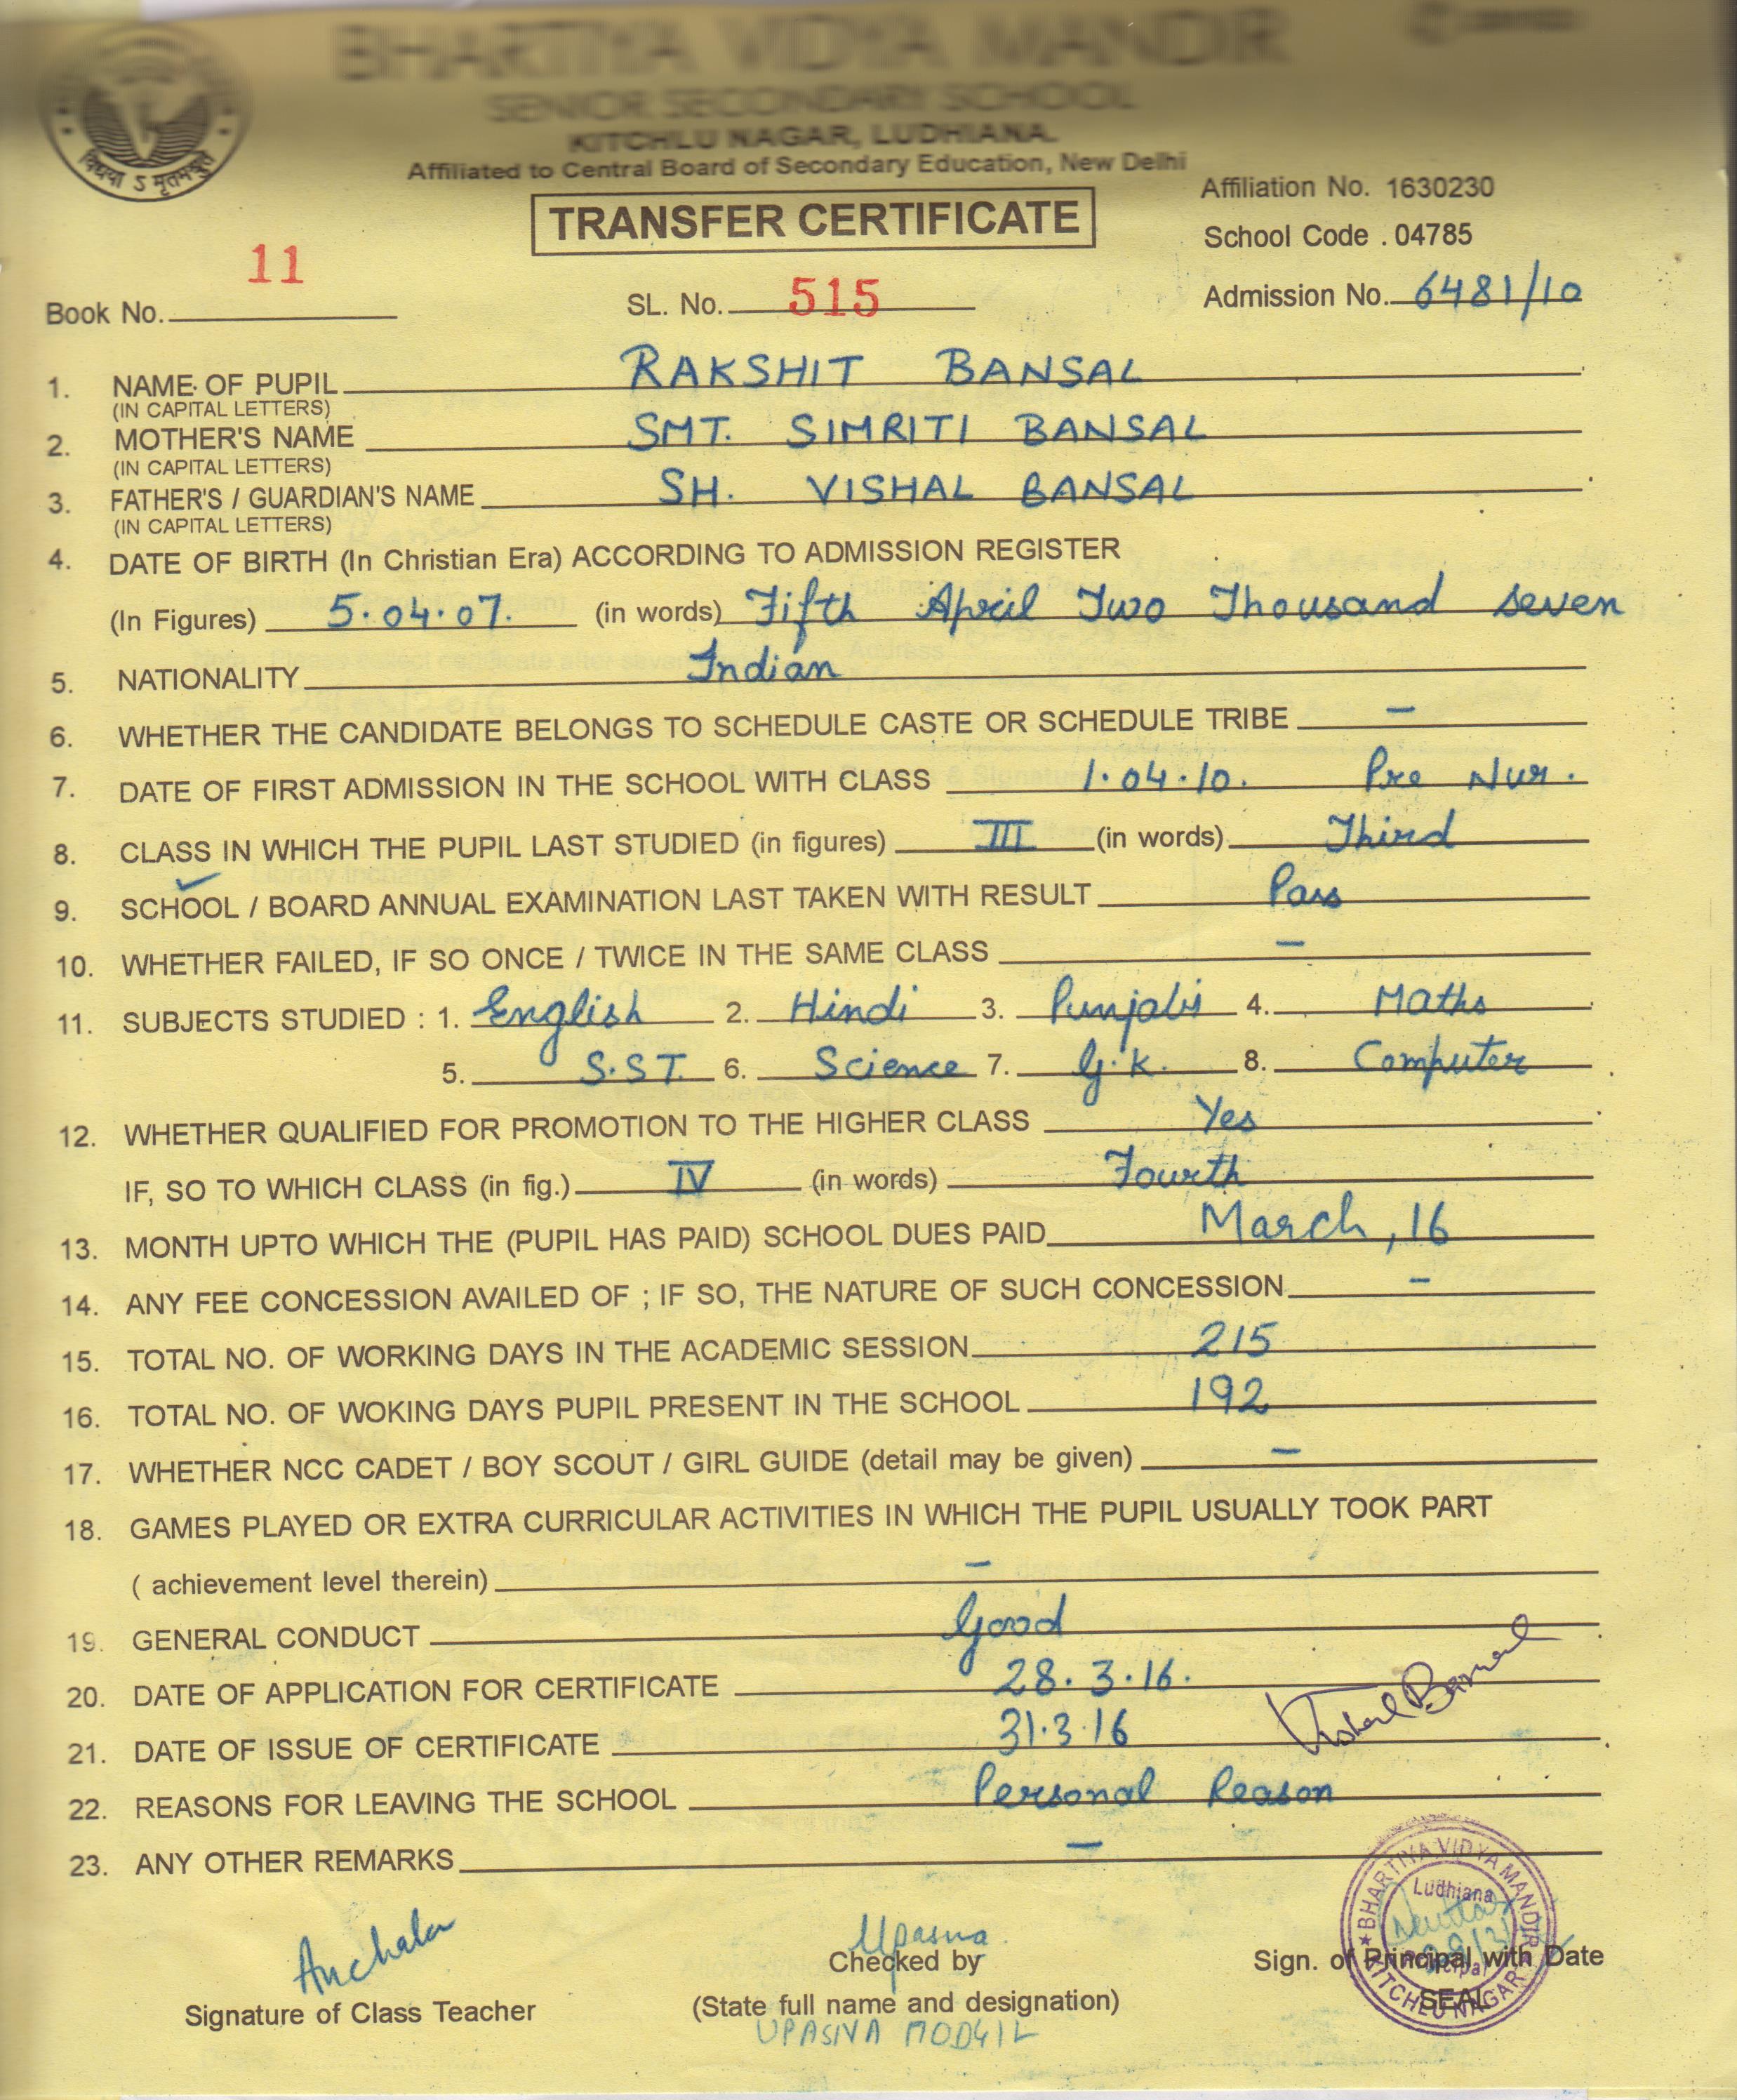 BHARTIYA VIDYA MANDIR
SENIOR SECONDARY SCHOOL
KITCHLU NAGAR, LUDHIANA.
Affiliated to Central Board of Secondary Education, New Delhi
TRANSFER CERTIFICATE
Affiliation No. 1630230
School Code . 04785
Book No. 11 SL. No. 515 Admission No. 6481/10
1. NAME OF PUPIL RAKSHIT BANSAL
(IN CAPITAL LETTERS)
2. MOTHER'S NAME SMT. SIMRITI BANSAL
(IN CAPITAL LETTERS)
3. FATHER'S / GUARDIAN'S NAME SH. VISHAL BANSAL
(IN CAPITAL LETTERS)
4. DATE OF BIRTH (In Christian Era) ACCORDING TO ADMISSION REGISTER
(In Figures) 5.04.07. (in words) Fifth April Two Thousand seven
5. NATIONALITY Indian
6. WHETHER THE CANDIDATE BELONGS TO SCHEDULE CASTE OR SCHEDULE TRIBE –
7. DATE OF FIRST ADMISSION IN THE SCHOOL WITH CLASS 1.04.10. Pre Nur.
8. CLASS IN WHICH THE PUPIL LAST STUDIED (in figures) III (in words) Third
9. SCHOOL / BOARD ANNUAL EXAMINATION LAST TAKEN WITH RESULT Pass
10. WHETHER FAILED, IF SO ONCE / TWICE IN THE SAME CLASS –
11. SUBJECTS STUDIED : 1. English 2. Hindi 3. Punjabi 4. Maths
5. S.ST. 6. Science 7. G.K. 8. Computer
12. WHETHER QUALIFIED FOR PROMOTION TO THE HIGHER CLASS Yes
IF, SO TO WHICH CLASS (in fig.) IV (in words) Fourth
13. MONTH UPTO WHICH THE (PUPIL HAS PAID) SCHOOL DUES PAID March, 16
14. ANY FEE CONCESSION AVAILED OF ; IF SO, THE NATURE OF SUCH CONCESSION –
15. TOTAL NO. OF WORKING DAYS IN THE ACADEMIC SESSION 215
16. TOTAL NO. OF WOKING DAYS PUPIL PRESENT IN THE SCHOOL 192
17. WHETHER NCC CADET / BOY SCOUT / GIRL GUIDE (detail may be given) –
18. GAMES PLAYED OR EXTRA CURRICULAR ACTIVITIES IN WHICH THE PUPIL USUALLY TOOK PART
( achievement level therein) –
19. GENERAL CONDUCT Good
20. DATE OF APPLICATION FOR CERTIFICATE 28.3.16.
21. DATE OF ISSUE OF CERTIFICATE 31.3.16
Vishal Bansal
22. REASONS FOR LEAVING THE SCHOOL Personal Reason
23. ANY OTHER REMARKS –
BHARTIYA VIDYA MANDIR
Ludhiana
Principal
KITCHLU NAGAR
Anchala
Upasna
Checked by
Sign. of Principal with Date
SEAL
Signature of Class Teacher
(State full name and designation)
UPASNA MODGIL